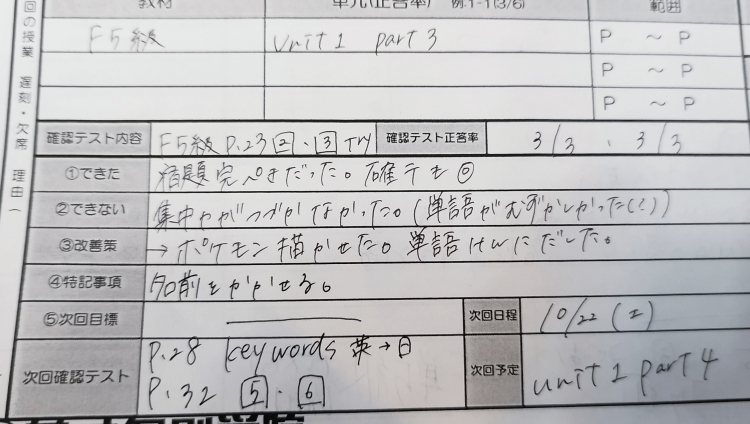 教材 単元(正答率) 例:1-1(3/6) 範囲
F5級 unit1 part3 P ～ P
P ～ P
P ～ P
回の授業 遅刻・欠席 理由(
確認テスト内容 F5級 P.23 2・3 Try 確認テスト正答率 3/3 . 3/3
①できた 宿題完ぺきだった。確テも◎
②できない 集中力がつづかなかった。(単語がむずかしかった(!))
③改善策 →ポケモン描かせた。単語HWにだした。
④特記事項 名前をかかせる。
⑤次回目標 次回日程 10/22 (土)
次回確認テスト P.28 keywords 英→日
P.32 5・6 次回予定 unit1 part4